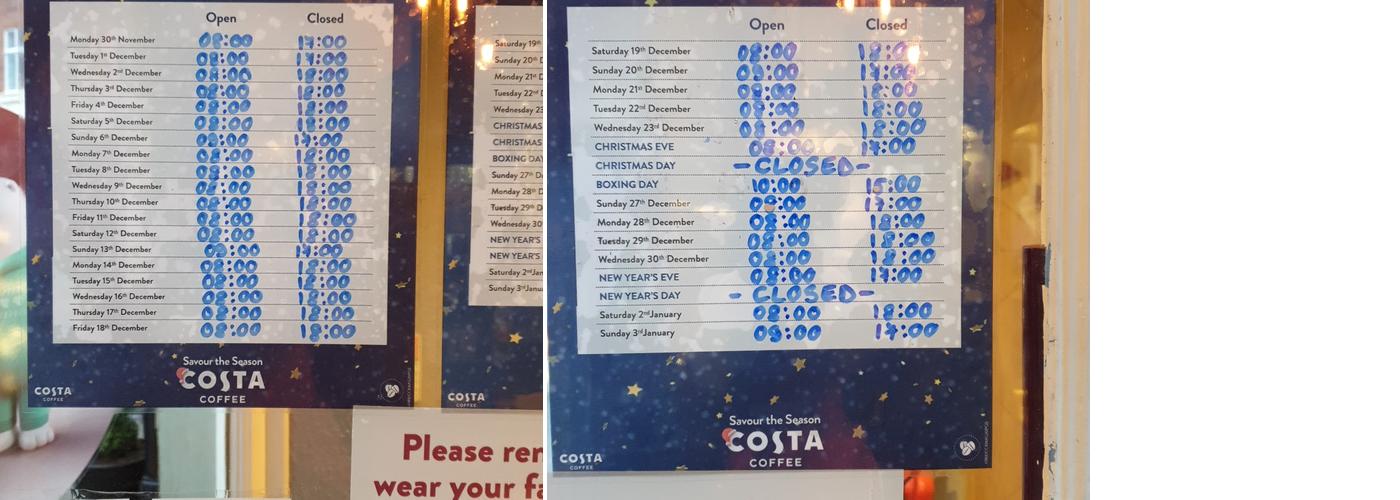 Open Closed
Monday 30th November 08:00
Tuesday 1st December 08:00
Wednesday 2nd December 08:00 18:00
Thursday 3rd December 08:00 18:00
Friday 4th December 08:00 18:00
Saturday 5th December 08:00 18:00
Sunday 6th December 17:00
Monday 7th December 08:00 18:00
Tuesday 8th December 08:00 18:00
Wednesday 9th December 08:00 18:00
Thursday 10th December 08:00 18:00
Friday 11th December 08:00 18:00
Saturday 12th December 08:00 18:00
Sunday 13th December 17:00
Monday 14th December 08:00 18:00
Tuesday 15th December 08:00 18:00
Wednesday 16th December 08:00 18:00
Thursday 17th December 08:00 18:00
Friday 18th December 08:00 18:00
Savour the Season
COSTA
COFFEE
COSTA
COFFEE
Saturday 19th
Sunday 20th
Monday 21st
Tuesday 22nd
Wednesday 23
CHRISTMAS
CHRISTMAS
BOXING DAY
Sunday 27th
Monday 28th
Tuesday 29th
Wednesday 30
NEW YEAR'S
NEW YEAR'S
Saturday 2nd Jan
Sunday 3rd Janu
COSTA
COFFEE
Please
wear your
Open Closed
Saturday 19th December 08:00 18:00
Sunday 20th December 17:00
Monday 21st December 08:00 18:00
Tuesday 22nd December 08:00 18:00
Wednesday 23rd December 08:00 18:00
CHRISTMAS EVE 08:00 17:00
CHRISTMAS DAY - CLOSED -
BOXING DAY 10:00 15:00
Sunday 27th December
Monday 28th December 08:00 18:00
Tuesday 29th December 08:00 18:00
Wednesday 30th December 08:00 18:00
NEW YEAR'S EVE 08:00 17:00
NEW YEAR'S DAY - CLOSED -
Saturday 2nd January 08:00 18:00
Sunday 3rd January 17:00
Savour the Season
COSTA
COFFEE
COSTA
COFFEE